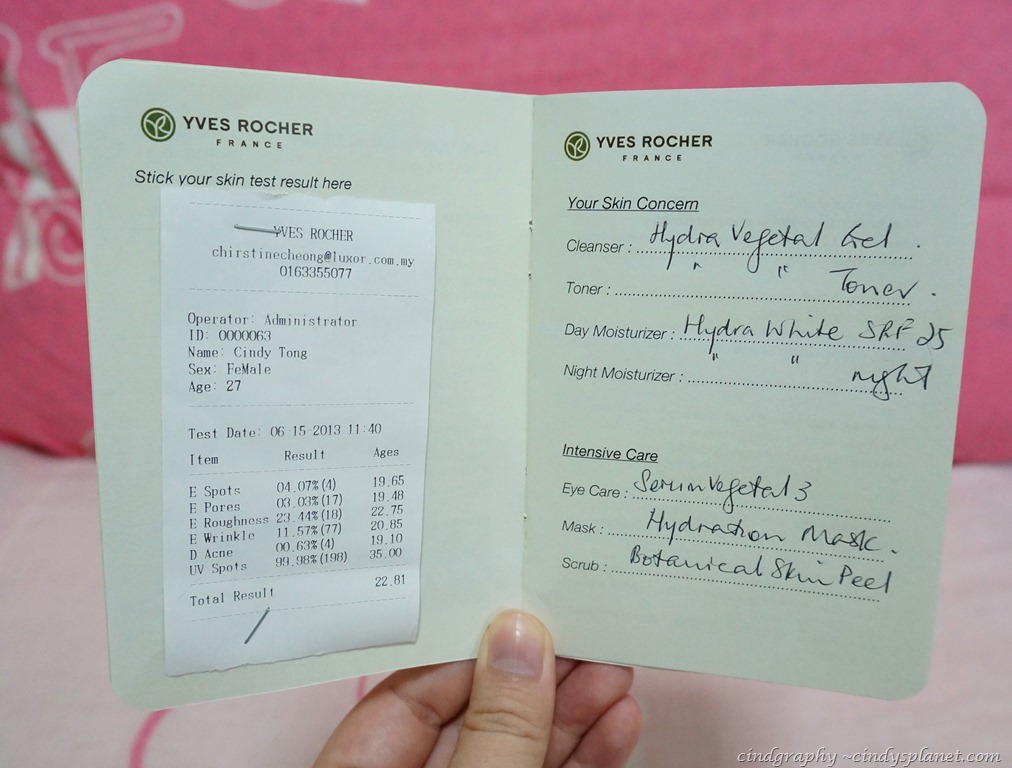 YVES ROCHER
FRANCE
Stick your skin test result here
YVES ROCHER
chirstinecheong@luxor.com.my
0163355077
Operator: Administrator
ID: 0000063
Name: Cindy Tong
Sex: FeMale
Age: 27
Test Date: 06-15-2013 11:40
Item Result Ages
E Spots 04.07%(4) 19.65
E Pores 03.03%(17) 19.48
E Roughness 23.44%(18) 22.75
E Wrinkle 11.57%(77) 20.85
D Acne 00.63%(4) 19.10
UV Spots 99.98%(198) 35.00
Total Result 22.81
YVES ROCHER
FRANCE
Your Skin Concern
Cleanser : Hydra Vegetal Gel .
Toner : " " Toner .
Day Moisturizer : Hydra White SPF 25
Night Moisturizer : " " night
Intensive Care
Eye Care : Serum Vegetal 3
Mask : Hydration Mask .
Scrub : Botanical Skin Peel
cindgraphy ~cindysplanet.com